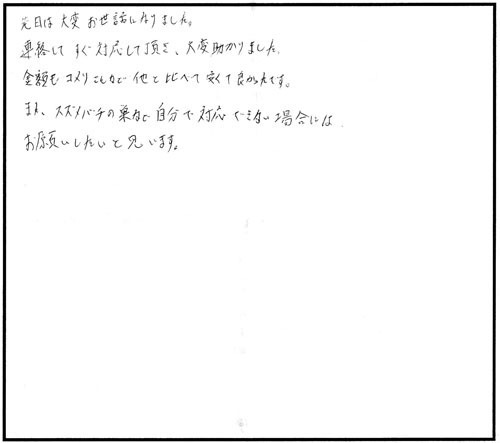 先日は大変お世話になりました。
連絡してすぐ対応して頂き、大変助かりました。
金額もコメリさんなど他と比べて安くて良かったです。
また、スズメバチの巣など自分で対応できない場合には
お願いしたいと思います。